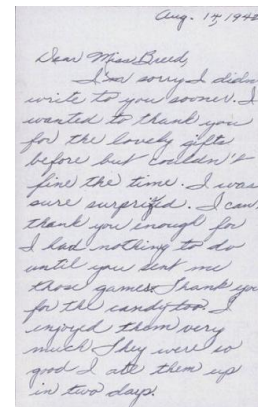 Aug. 17, 1942
Dear Miss Breed,
I'm sorry I didn
write to you sooner. I
wanted to thank you
for the lovely gifts
before but couldn't
fine the time. I was
sure surprized. I can
thank you enough for
I had nothing to do
until you sent me
those games. Thank you
for the candy too. I
enjoyed them very
much. They were so
good I ate them up
in two days.